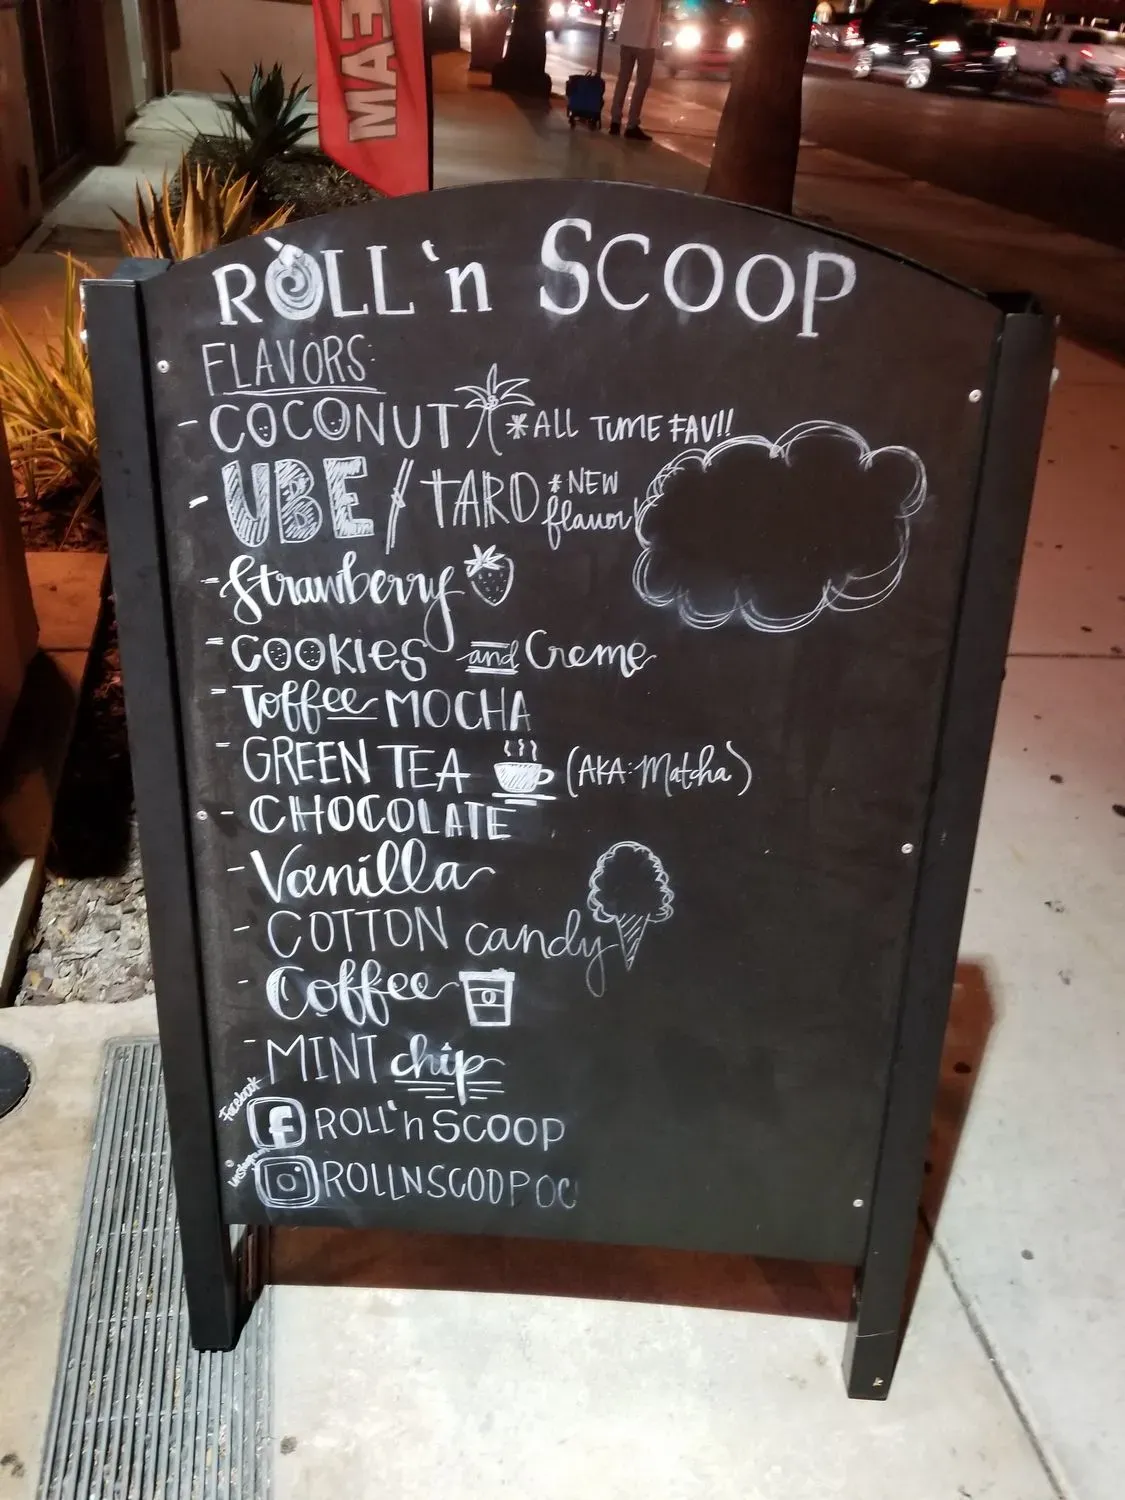 MAE
ROLL 'n SCOOP
FLAVORS:
- COCONUT *ALL TIME FAV!!
- UBE / TARO *NEW flavor!
- Strawberry
- COOKIES and Creme
- Toffee MOCHA
- GREEN TEA (AKA: Matcha)
- CHOCOLATE
- Vanilla
- COTTON candy
- Coffee
- MINT chip
Facebook f ROLL'n SCOOP
instagram ROLLNSCOOPOC